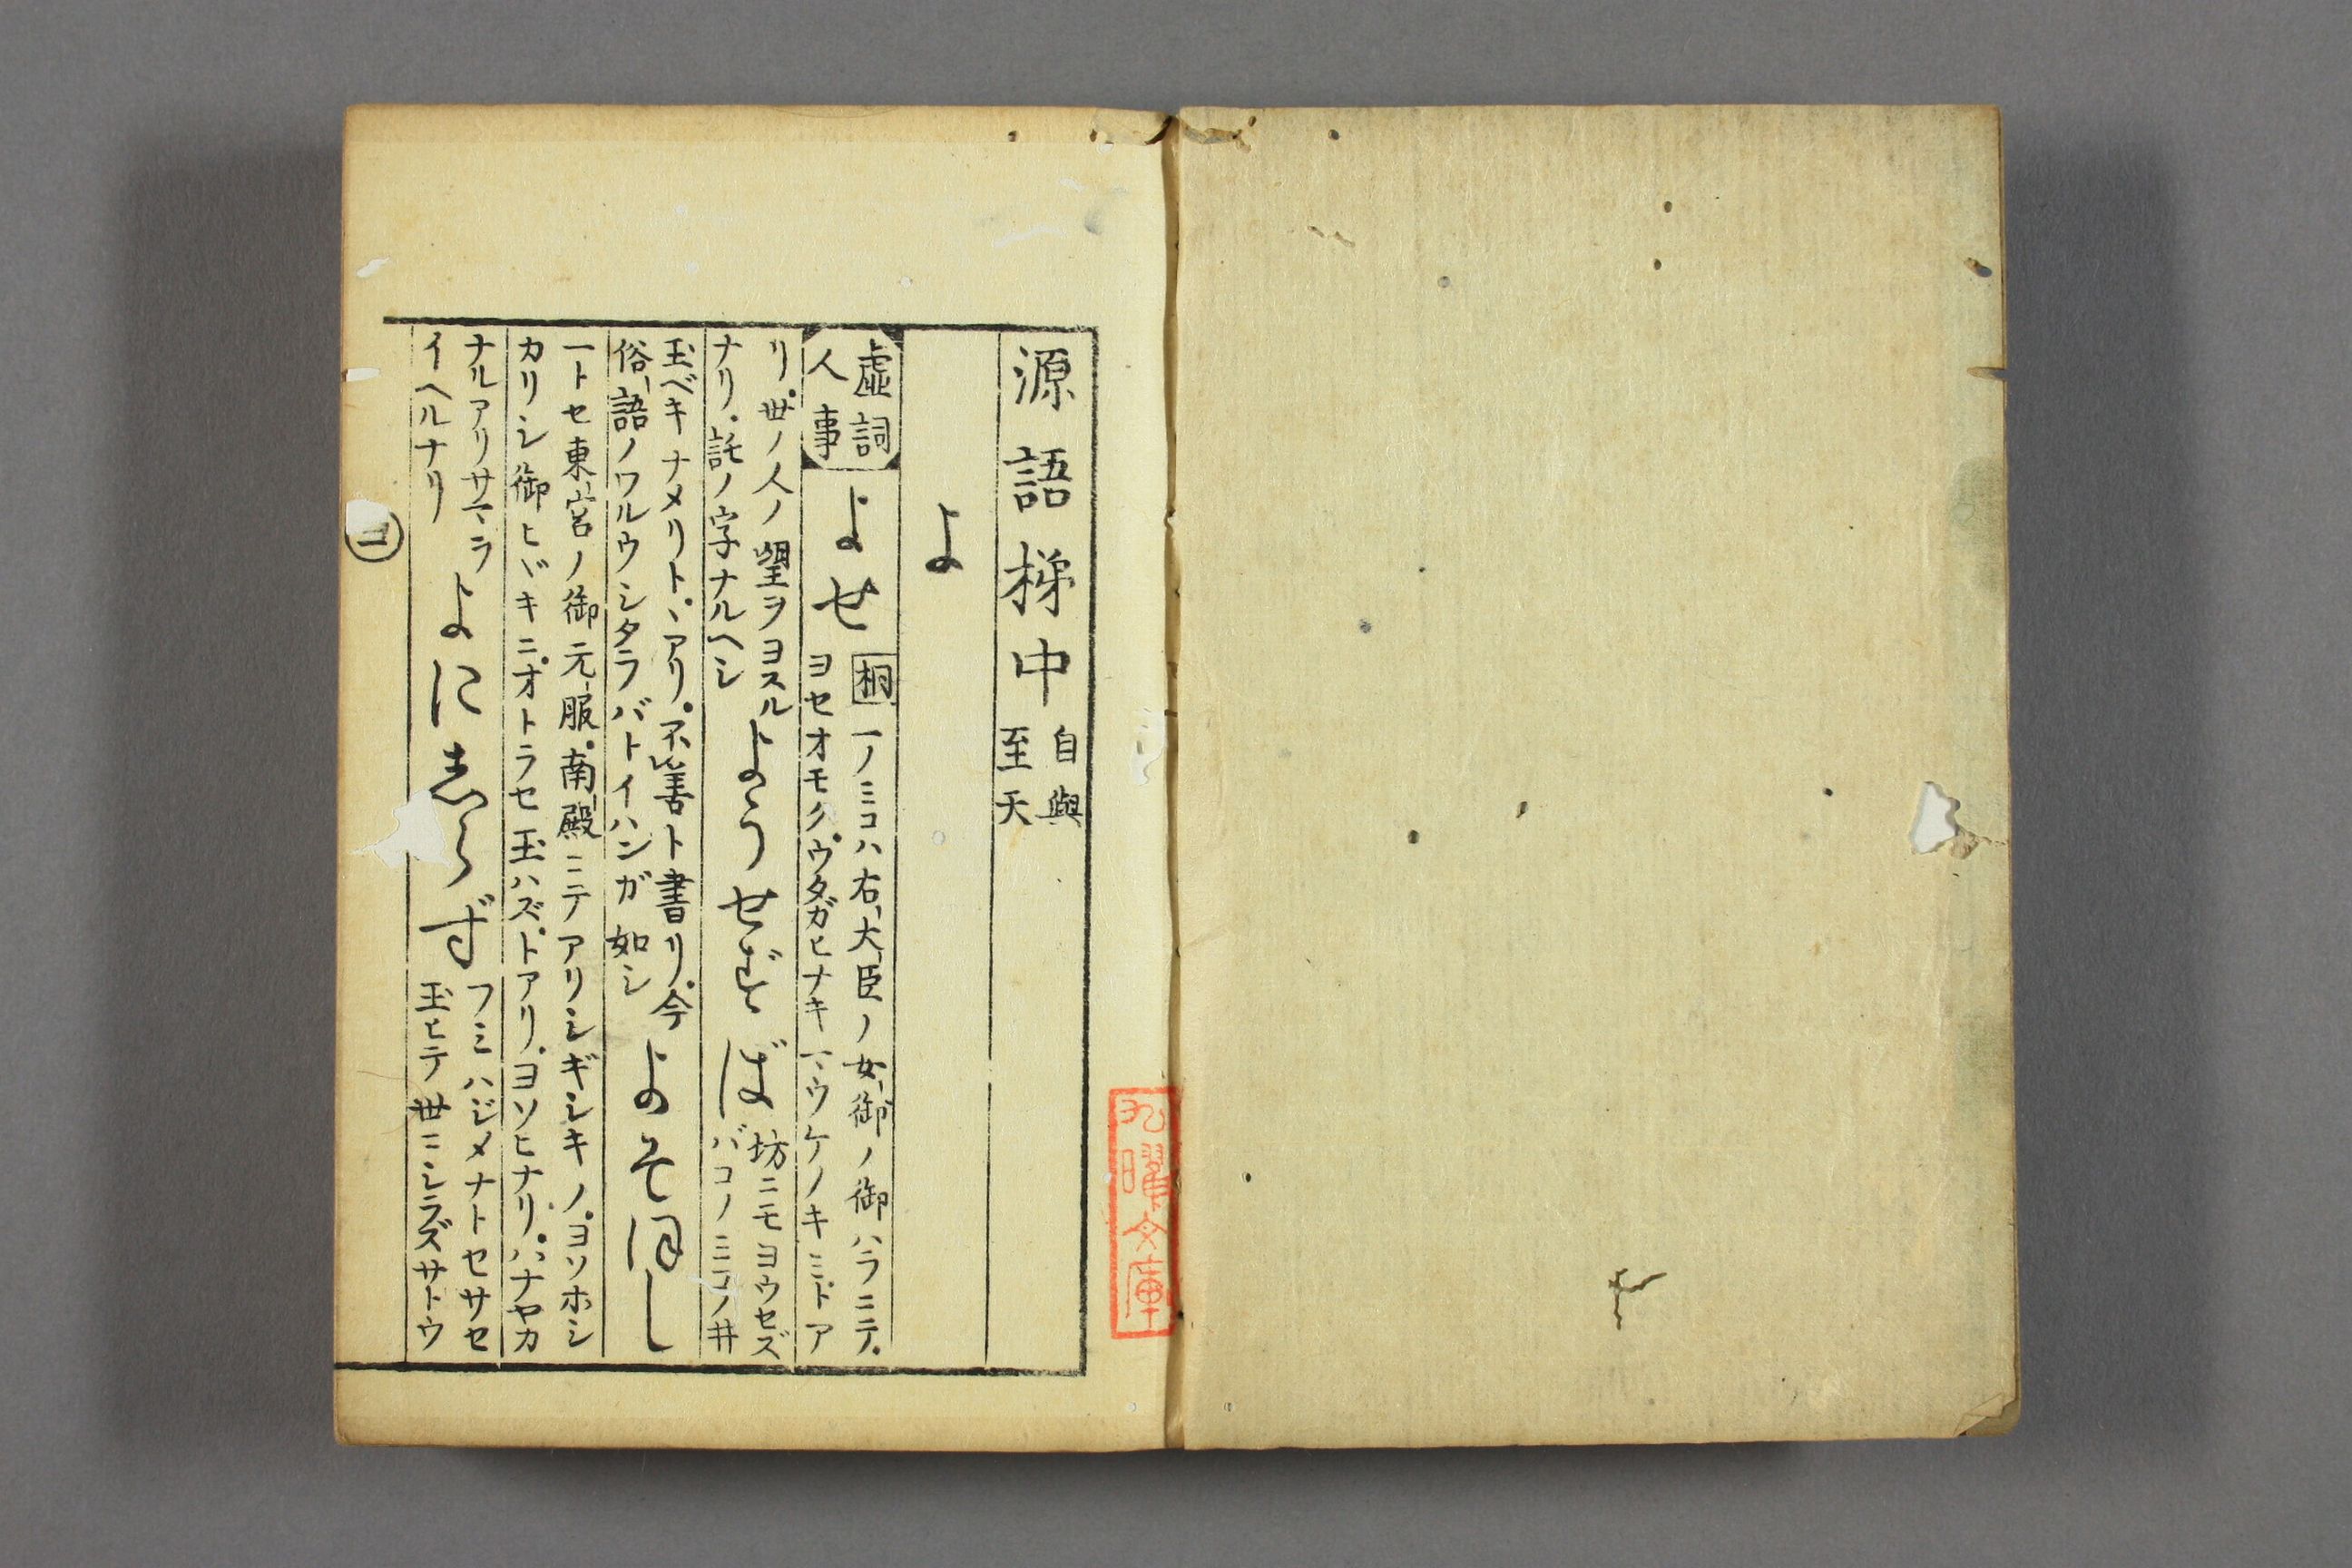 源語梯中 自與
至天
よ
虚詞
人事
よせ
桐 一ノミコハ右大臣ノ女御ノ御ハラニテ。
ヨセオモク。ウタガヒナキマウケノキミトア
リ。世ノ人ノ望ヲヨスル
ナリ。託ノ字ナルヘシ
ようせずば
坊ニモヨウセズ
バコノミコノ井
玉ベキナメリト、アリ。不善ト書リ。今
俗語ノワルウシタラバトイハンガ如シ
よそほし
一トセ東宮ノ御元服。南殿ニテアリシギシキノ。ヨソホシ
カリシ御ヒヾキニ。オトラセ玉ハズ。トアリ。ヨソヒナリ。ハナヤカ
ナルアリサマヲ
イヘルナリ
よにしらず
フミハジメナトセサセ
玉ヒテ世ニシラズサトウ
ヨ
九曜文庫